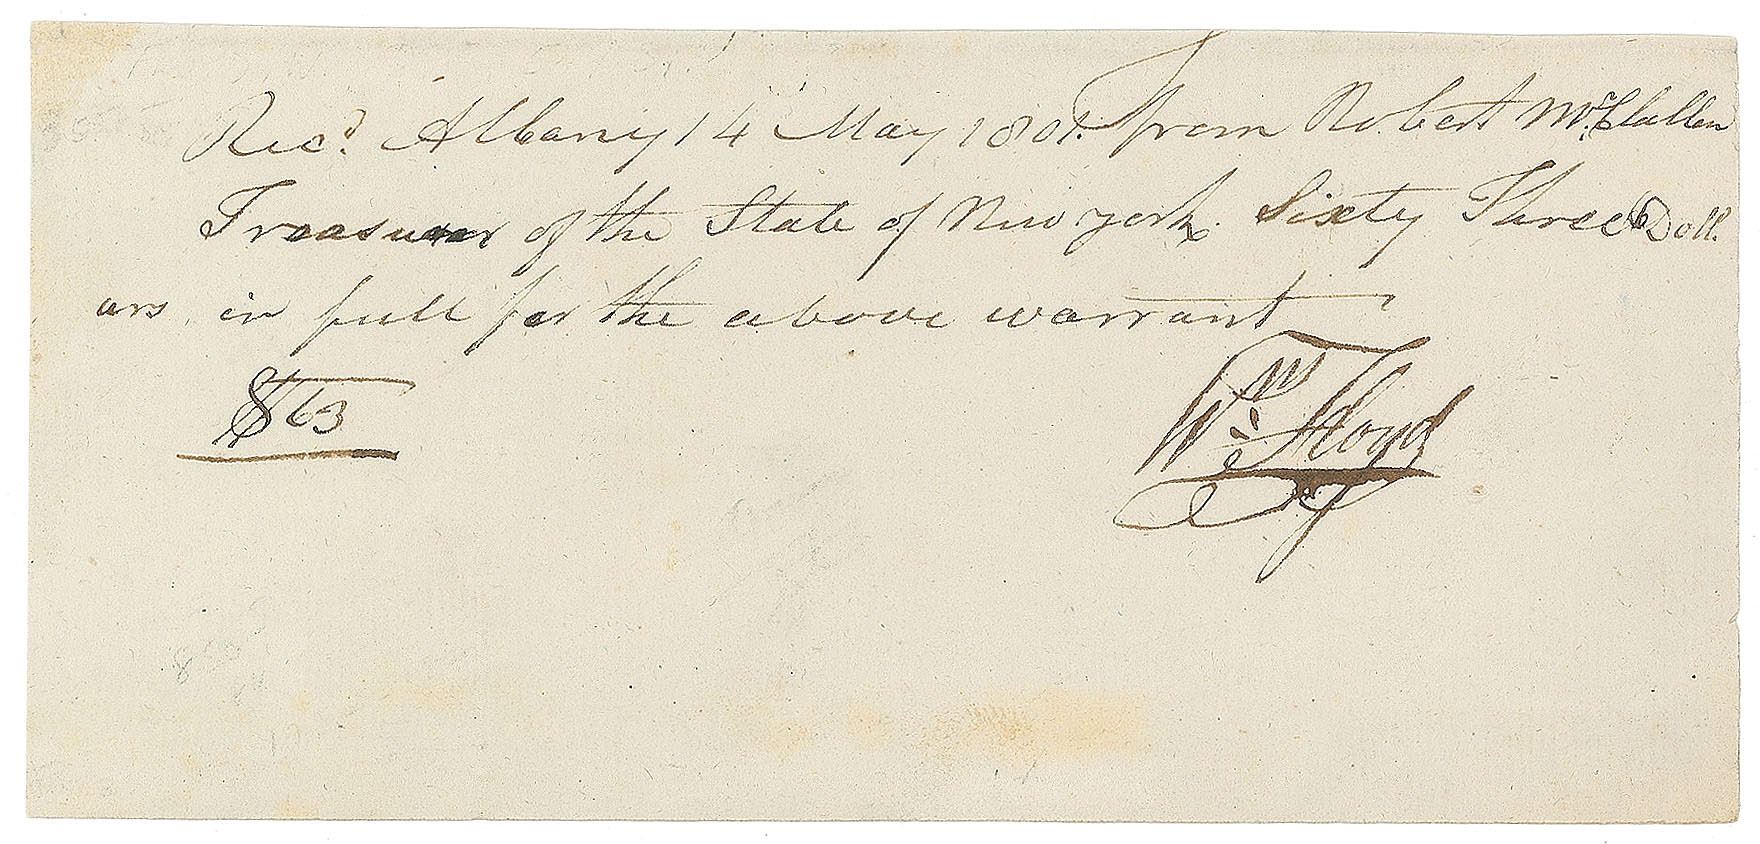 Recd. Albany 14 May 1801. from Robert McClallen
Treasurer of the State of New york. Sixty Three Doll
ars in full for the above warrant
$63
Wm. Floyd